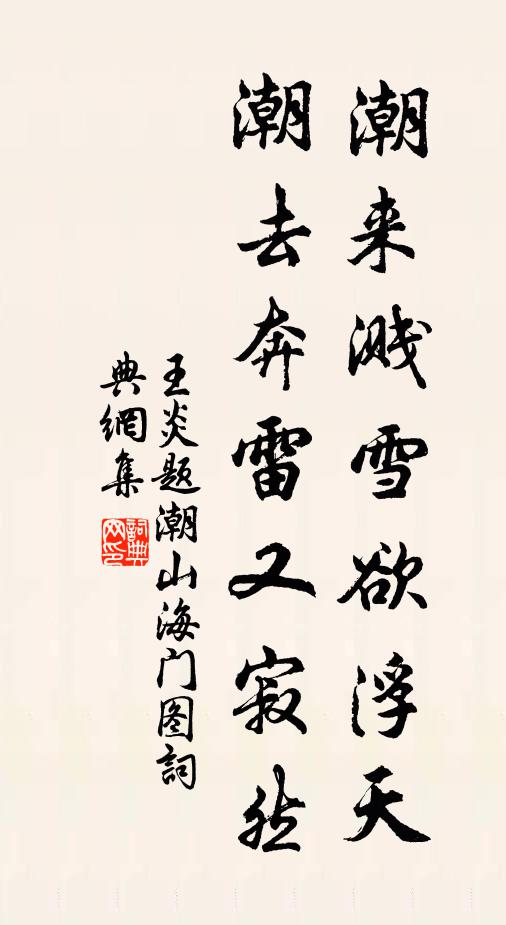 潮来溅雪欲浮天
潮去奔雷又寂然
王炎题潮山海门图詞
典網集
詞典网印